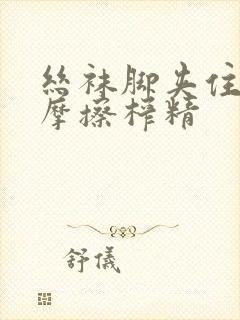 丝袜脚夹住
摩擦榨精
舒儀